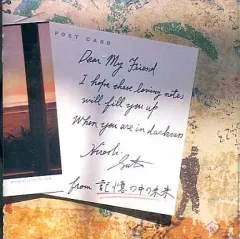 POST CARD
Dear My Friend
I hope these loving notes
will fill you up
When you are in darkness
Hiroshi
from 記憶の中の未来